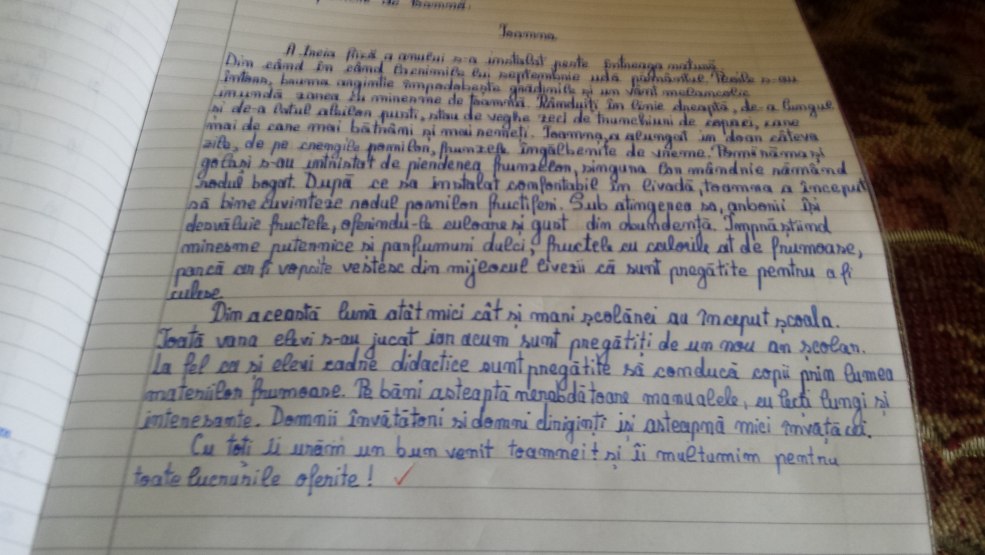 de toamnă.
Toamna
A treia fiică a anului s-a instalat peste întreaga natură.
Din când în când lacrimile lui septembrie udă pământul. Ploile s-au
întors, bruma argintie împodobește grădinile și un vânt melancolic
inundă zarea cu miresme de toamnă. Rânduiți în linie dreaptă, de-a lungul
și de-a latul aleilor pustii, stau de veghe zeci de trunchiuri de copaci, care
mai de care mai bătrâni și mai semeți. Toamna, a alungat in doar câteva
zile, de pe crengile pomilor, frunzele îngălbenite de vreme. Pomii rămași
golași s-au întristat de pierderea frunzelor, singura lor mândrie rămând
rodul bogat. După ce sa instalat comfortabil în livadă, toamna a început
să bine cuvinteze rodul pomilor fructiferi. Sub atingerea sa, arborii își
desvăluie fructele, oferindu-le culoare și gust din abundență. Împrăștiind
miresme puternice si parfumuri dulci, fructele cu culorile at de frumoase,
parcă ar fi vopsite vestesc din mijlocul livezii că sunt pregătite pentru a fi
culese.
Din această lună atât mici cât și mari școlărei au început școala.
Toată vara elevi s-au jucat iar acum sunt pregătiți de un nou an școlar.
La fel ca si elevi cadre didactice sunt pregătite să conducă copii prin lumea
materiilor frumoase. Pe bănci asteaptă nerabdătoare manualele, cu lecți lungi și
interesante. Domnii învătători si domni diriginți iși asteapnă mici învățăcei.
Cu toți îi urăm un bun venit toamnei! și îi multumim pentru
toate lucrurile oferite!